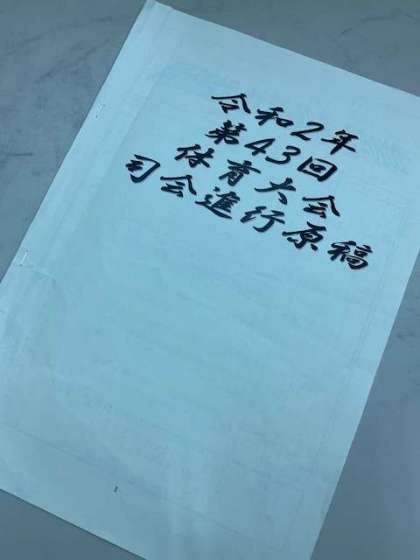 令和2年
第43回
体育大会
司会進行原稿